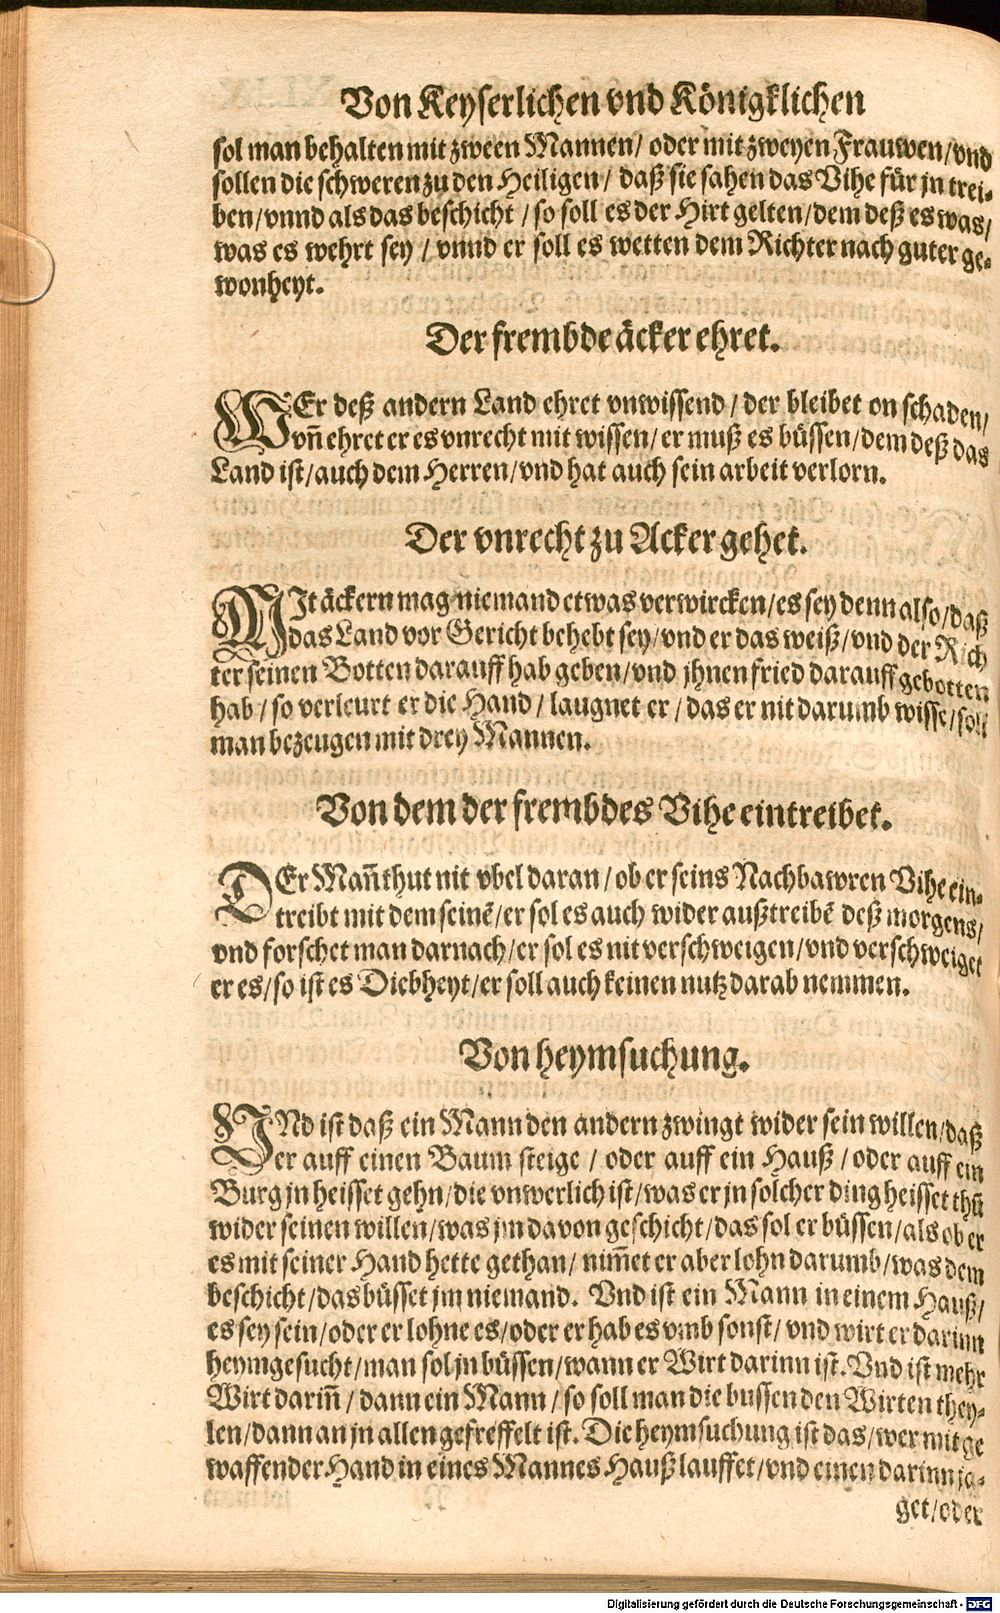 Von Keyserlichen vnd Königklichen
sol man behalten mit zween Mannen/ oder mit zweyen Frauwen/ vnd
sollen die schweren zu den Heiligen/ daß sie sahen das Vihe für jn trei-
ben/ vnnd als das beschicht/ so soll es der Hirt gelten/ dem deß es was/
was es wehrt sey/ vnnd er soll es wetten dem Richter nach guter ge-
wonheyt.
Der frembde äcker ehret.
WEr deß andern Land ehret vnwissend/ der bleibet on schaden/
vñ ehret er es vnrecht mit wissen/ er muß es büssen/ dem deß das
Land ist/ auch dem Herren/ vnd hat auch sein arbeit verlorn.
Der vnrecht zu Acker gehet.
MIt äckern mag niemand etwas verwircken/ es sey denn also/ daß
das Land vor Gericht behebt sey/ vnd er das weiß/ vnd der Rich
ter seinen Botten darauff hab geben/ vnd jhnen fried darauff gebotten
hab/ so verleurt er die Hand/ laugnet er/ das er nit darumb wisse/ soll
man bezeugen mit drey Mannen.
Von dem der frembdes Vihe eintreibet.
DEr Mañ thut nit vbel daran/ ob er seins Nachbawren Vihe ein-
treibt mit dem seinē/ er sol es auch wider außtreibē deß morgens/
vnd forschet man darnach/ er sol es nit verschweigen/ vnd verschweiget
er es/ so ist es Diebheyt/ er soll auch keinen nutz darab nemmen.
Von heymsuchung.
VNd ist daß ein Mann den andern zwingt wider sein willen/ daß
er auff einen Baum steige/ oder auff ein Hauß/ oder auff ein
Burg jn heisset gehn/ die vnwerlich ist/ was er jn solcher ding heisset thū
wider seinen willen/ was jm davon geschicht/ das sol er büssen/ als ob er
es mit seiner Hand hette gethan/ nim̄et er aber lohn darumb/ was dem
beschicht/ das büsset jm niemand. Vnd ist ein Mann in einem Hauß/
es sey sein/ oder er lohne es/ oder er hab es vmb sonst/ vnd wirt er darinn
heymgesucht/ man sol jn büssen/ wann er Wirt darinn ist. Vnd ist mehr
Wirt dariñ/ dann ein Mann/ so soll man die bussen den Wirten they-
len/ dann an jn allen gefreffelt ist. Die heymsuchung ist das/ wer mit ge
waffender Hand in eines Mannes Hauß lauffet/ vnd einen darinn ja-
get/ oder
Digitalisierung gefördert durch die Deutsche Forschungsgemeinschaft - DFG